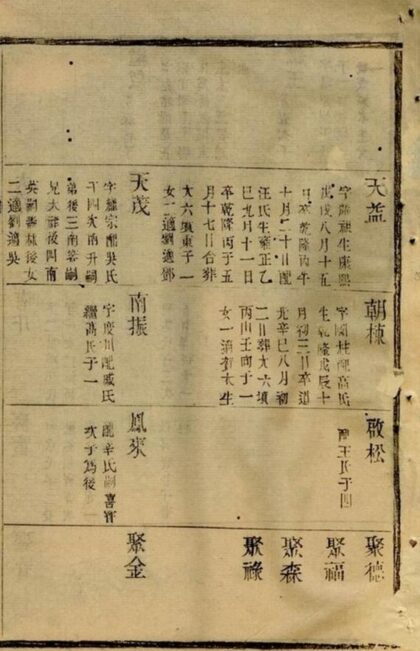 天益
生康熙
戊戌八月十五
日卒乾隆丙午
十月二十日配
汪氏生雍正乙
巳九月十一日
卒乾隆丙子五
月十七日合葬
大六項東子一
女一適劉適鄧
天茂
字繼宗配吳氏
子四次南升嗣
弟後三南榮嗣
兄天祥後四南
英嗣壽林後女
二適劉適吳
朝棟
字國柱配高氏
生乾隆戊辰十
月初三日卒道
光辛巳八月初
二日葬大六項
丙山壬向子一
女一適賀大生
南振
字慶川配戚氏
繼高氏子一
啟松
配王氏子四
鳳來
配辛氏嗣喜
次子為後
聚德
聚福
聚森
聚祿
聚金